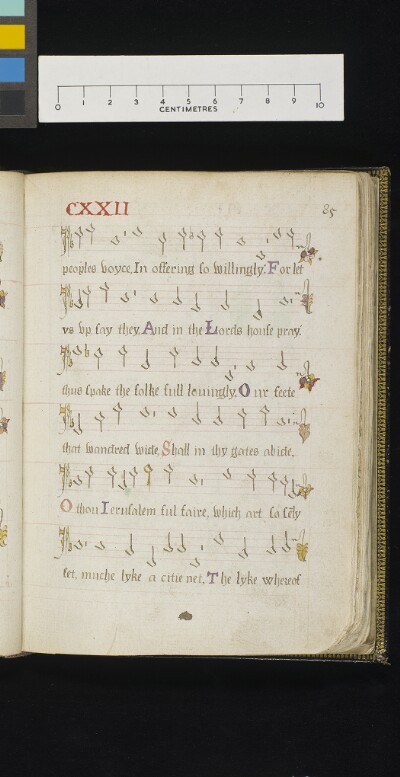 0 1 2 3 4 5 6 7 8 9 10
CENTIMETRES
CXXII
85
peoples voyce, In offering so willingly. For let
vs vp say they, And in the Lords house pray.
thus spake the folke full louingly, Our feete
that wandred wide, Shall in thy gates abide,
O thou Ierusalem ful faire, which art so sēly
set, muche lyke a citie net, The lyke whereof